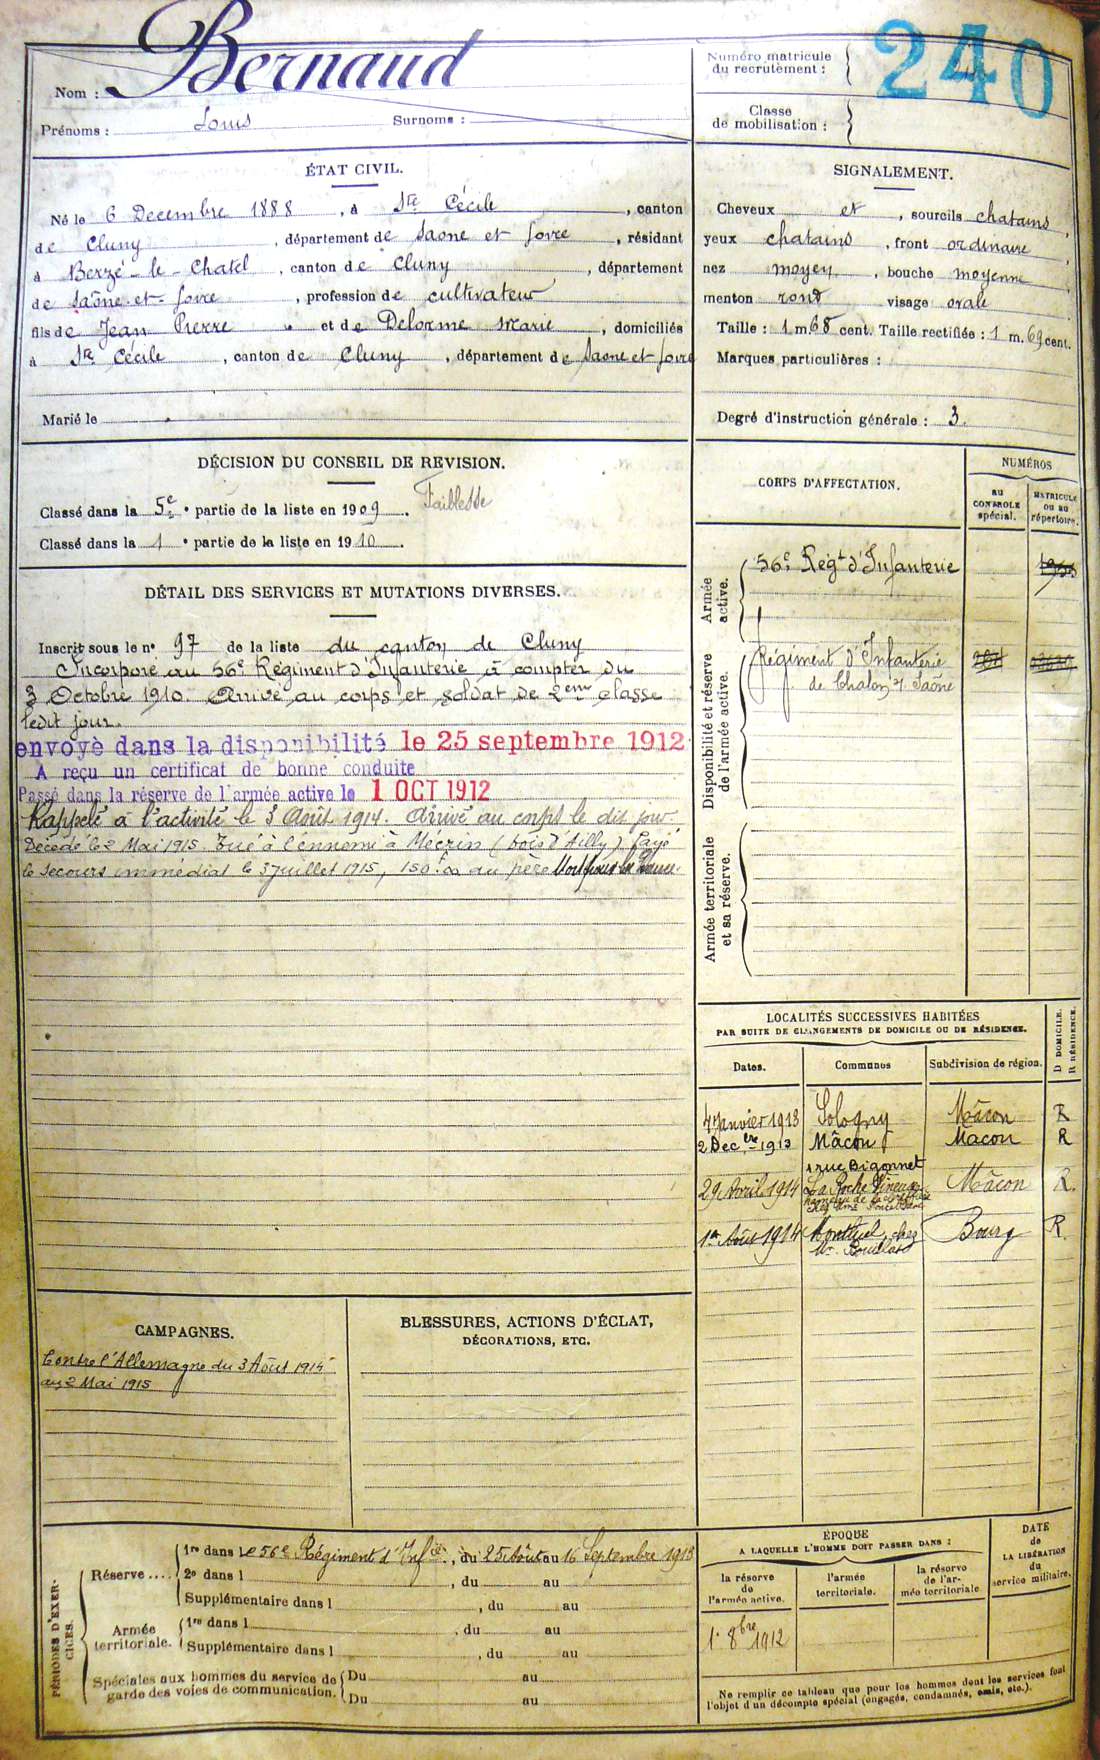 Nom : Bernaud
Prénoms : Louis Surnoms :
Numéro matricule
du recrutement : 240
Classe
de mobilisation :
ÉTAT CIVIL.
Né le 6 Decembre 1888, à Ste Cécile, canton
de Cluny, département de Saone et Loire, résidant
à Berzé-le-Chatel, canton de Cluny, département
de Saône-et-Loire, profession de cultivateur
fils de Jean Pierre et de Delorme Marie, domiciliés
à Ste Cécile, canton de Cluny, département de Saone et Loire
Marié le
SIGNALEMENT.
Cheveux et, sourcils chatains,
yeux chatains, front ordinaire,
nez moyen, bouche moyenne,
menton rond visage ovale
Taille : 1 m. 68 cent. Taille rectifiée : 1 m. 69 cent.
Marques particulières :
Degré d'instruction générale : 3.
DÉCISION DU CONSEIL DE REVISION.
Classé dans la 5e partie de la liste en 1909. Faiblesse
Classé dans la 1 e partie de la liste en 1910.
DÉTAIL DES SERVICES ET MUTATIONS DIVERSES.
Inscrit sous le no 97 de la liste du canton de Cluny
Incorporé au 56e Régiment d'Infanterie à compter du
3 Octobre 1910. Arrivé au corps et soldat de 2eme classe
ledit jour.
envoyè dans la disponibilité le 25 septembre 1912
A reçu un certificat de bonne conduite
Passé dans la réserve de l'armée active le 1 OCT 1912
Rappelé à l'activité le 3 Août 1914. Arrivé au corps le dit jour.
Décédé le 2 Mai 1915. Tué à l'ennemi à Mécrin (bois d'Ailly). Payé
le secours immédiat le 3 juillet 1915, 150f au père Mort pour la France.
CORPS D'AFFECTATION.
NUMÉROS
AU CONTROLE spécial.
MATRICULE OU AU répertoire.
Armée
active.
56e Régt d'Infanterie
Disponibilité et réserve
de l'armée active.
Régiment d'Infanterie
de Chalon s/ Saône
Armée territoriale
et sa réserve.
LOCALITÉS SUCCESSIVES HABITÉES
PAR SUITE DE CHANGEMENTS DE DOMICILE OU DE RÉSIDENCE.
D DOMICILE.
R RÉSIDENCE.
Dates. Communes Subdivision de région.
4 Janvier 1913 Sologny Mâcon R
2 Decbre 1913 Mâcon Macon R
1 rue Bigonnet
29 Avril 1914 La Roche Vineuse Mâcon R.
1er Août 1914 Montluel, chez Bourg R.
CAMPAGNES.
Contre l'Allemagne du 3 Août 1914
au 2 Mai 1915
BLESSURES, ACTIONS D'ÉCLAT,
DÉCORATIONS, ETC.
PÉRIODES D'EXERCICES.
Réserve....
1re dans le 56e Régiment d'Infie, du 25 Août au 16 Septembre 1913
2e dans l, du au
Supplémentaire dans l, du au
Armée
territoriale.
1re dans l, du au
Supplémentaire dans l, du au
Spéciales aux hommes du service de
garde des voies de communication.
Du au
Du au
ÉPOQUE
A LAQUELLE L'HOMME DOIT PASSER DANS :
DATE
de
LA LIBÉRATION
du
service militaire.
la réserve
de
l'armée active.
l'armée
territoriale.
la réserve
de l'ar-
mée territoriale
1. 8bre 1912
Ne remplir ce tableau que pour les hommes dont les services font
l'objet d'un décompte spécial (engagés, condamnés, omis, etc.).